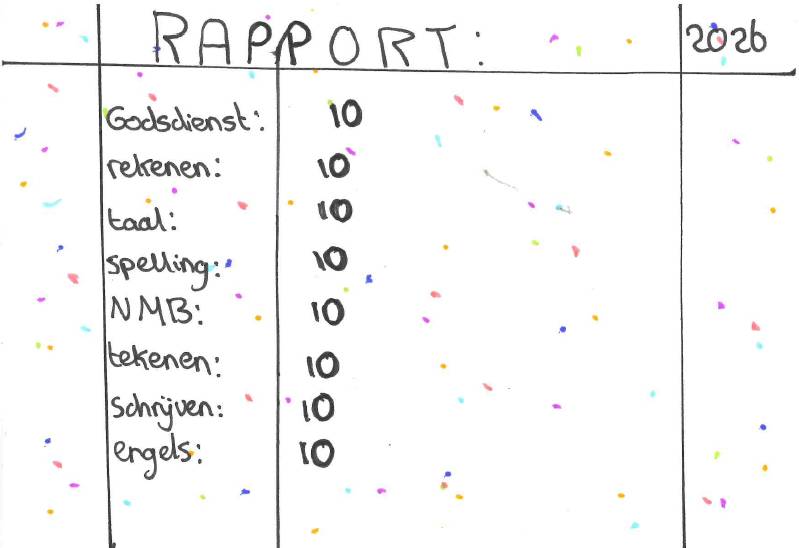 RAPPORT: 2026
Godsdienst: 10
rekenen: 10
taal: 10
spelling: 10
NMB: 10
tekenen: 10
schrijven: 10
engels: 10